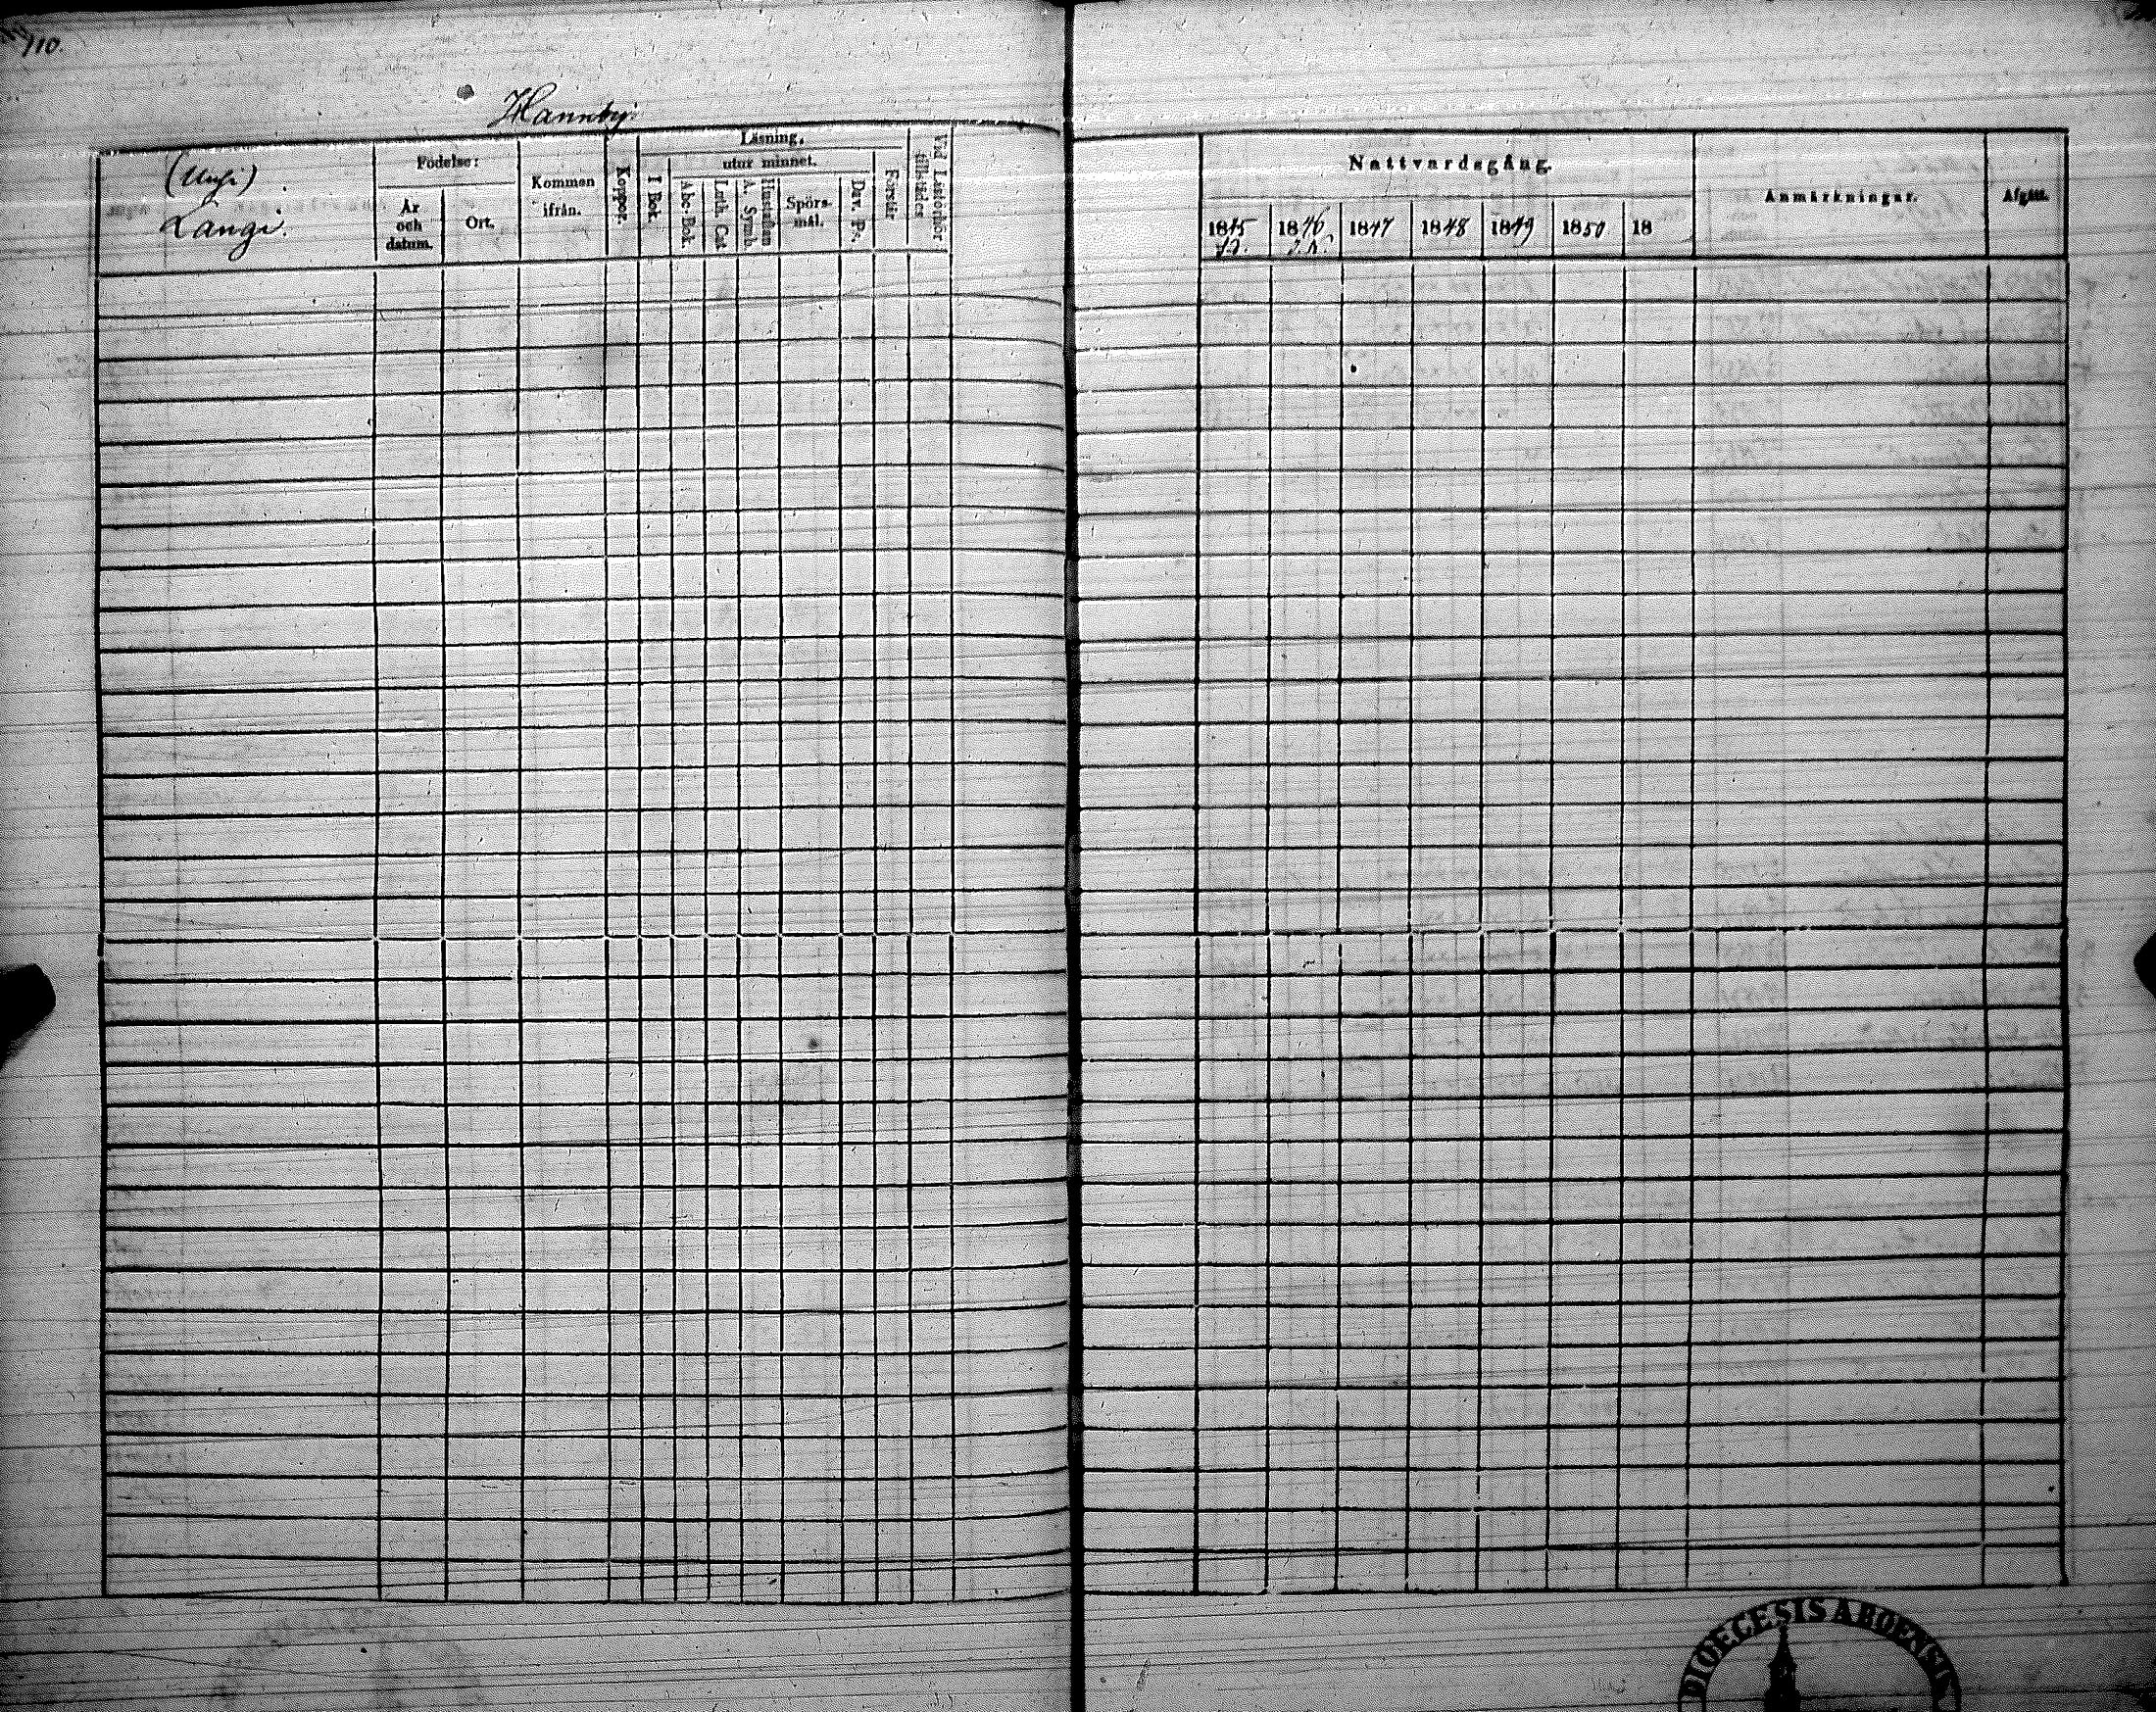 110.
Hannby.
(Unsi)
Längi.
Födelse:
År och datum.
Ort.
Kommen ifrån.
Koppor.
Läsning,
I Bok.
utur minnet.
Abc-Bok.
Luth. Cat.
Hustaflan A. Symb.
Spörsmål.
Dav. Ps.
Förstår
Vid Läsförhör tillstädes
Nattvardsgång.
1845 1846 1847 1848 1849 1850 18
Anmärkningar.
Afgått.
DIOECESIS ABOENSIS